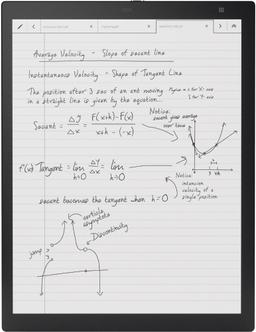 Average Velocity - Slope of secant line
Instantaneous Velocity - Shape of Tangent Line
The position after 3 sec of an ant moving
in a straight line is given by the equation...
Physics = s for X-axis
t for Y-axis
Notice:
secant gives average
over time
Secant = Δy/Δx = F(x+h)-F(x)/x+h-(-x)
f'(x) Tangent = lim h→0 Δy/Δx = lim h→0
Notice:
velocity of a
single position
secant becomes the tangent when h=0
vertical
asymptote
Discontinuity
jump